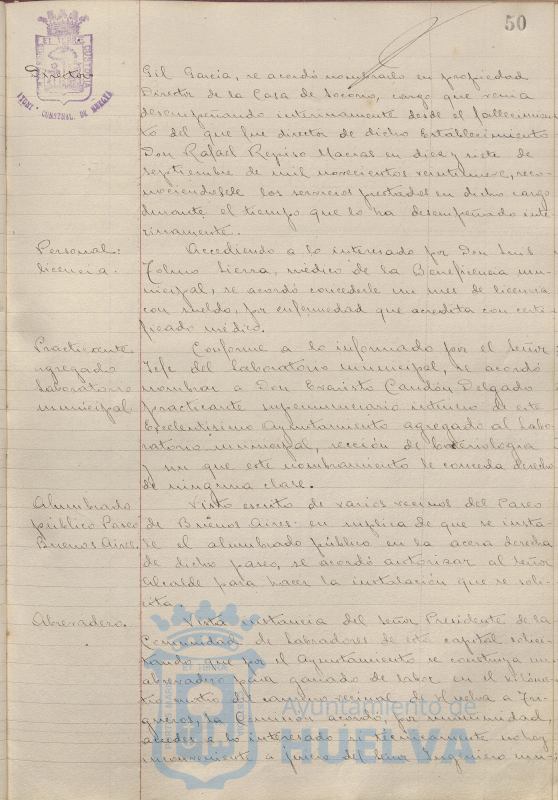 50
Director
Gil García, se acordó nombrarlo en propiedad
Director de la Casa de Socorro, cargo que venía
desempeñando interinamente desde el fallecimien-
to del que fue director de dicho Establecimiento
Don Rafael Repiso Macías en diez y siete de
septiembre de mil novecientos veintinueve, reco-
nociéndosele los servicios prestados en dicho cargo
durante el tiempo que lo ha desempeñado inte-
rinamente.
Personal:
licencia.
Accediendo a lo interesado por Don Luis
Tolmo Sierra, médico de la Beneficencia mu-
nicipal, se acordó concederle un mes de licencia
con sueldo, por enfermedad que acredita con certi-
ficado médico.
Practicante
agregado
Laboratorio
municipal.
Conforme a lo informado por el Señor
Jefe del Laboratorio municipal, se acordó
nombrar a Don Evaristo Candón Delgado
practicante supernumerario interino de este
Excelentísimo Ayuntamiento agregado al Labo-
ratorio municipal, sección de Bacteriología
y sin que este nombramiento le conceda derecho
de ninguna clase.
Alumbrado
público Paseo
Buenos Aires.
Visto escrito de varios vecinos del Paseo
de Buenos Aires en súplica de que se insta-
le el alumbrado público en la acera derecha
de dicho paseo, se acordó autorizar al Señor
Alcalde para hacer la instalación que se soli-
cita.
Abrevadero.
Vista instancia del Señor Presidente de la
Comunidad de Labradores de esta capital solici-
tando que por el Ayuntamiento se construya un
abrevadero para ganado de labor en el
del camino vecinal de Huelva a Tri-
gueros, la Comisión acordó, por unanimidad,
acceder a lo interesado si técnicamente no hay
inconveniente a juicio del Señor Ingeniero mu-
Ayuntamiento de
HUELVA